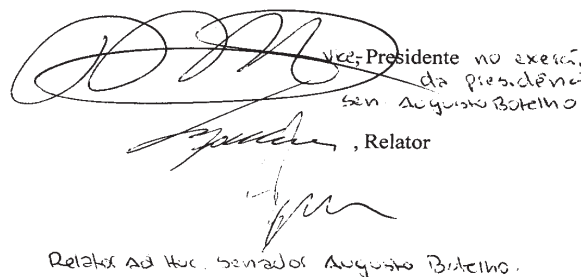 Vice-Presidente no exercí,
da presidênc
sen. Augusto Botelho
, Relator
Relator Ad Hoc. Senador Augusto Botelho.